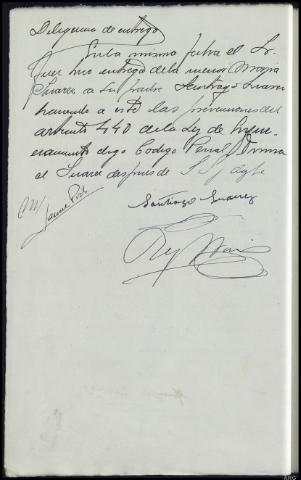 Diligencia de entrega
En la misma fecha el Sr.
Juez hizo entrega de la menor Maria
Suarez a su padre Santiago Suarez
haciendo a este las prevenciones del
articulo 440 de la Ley de Enjui-
ciamiento digo Codigo Penal firma
el Suarez después de S. Sª
Santiago Suarez